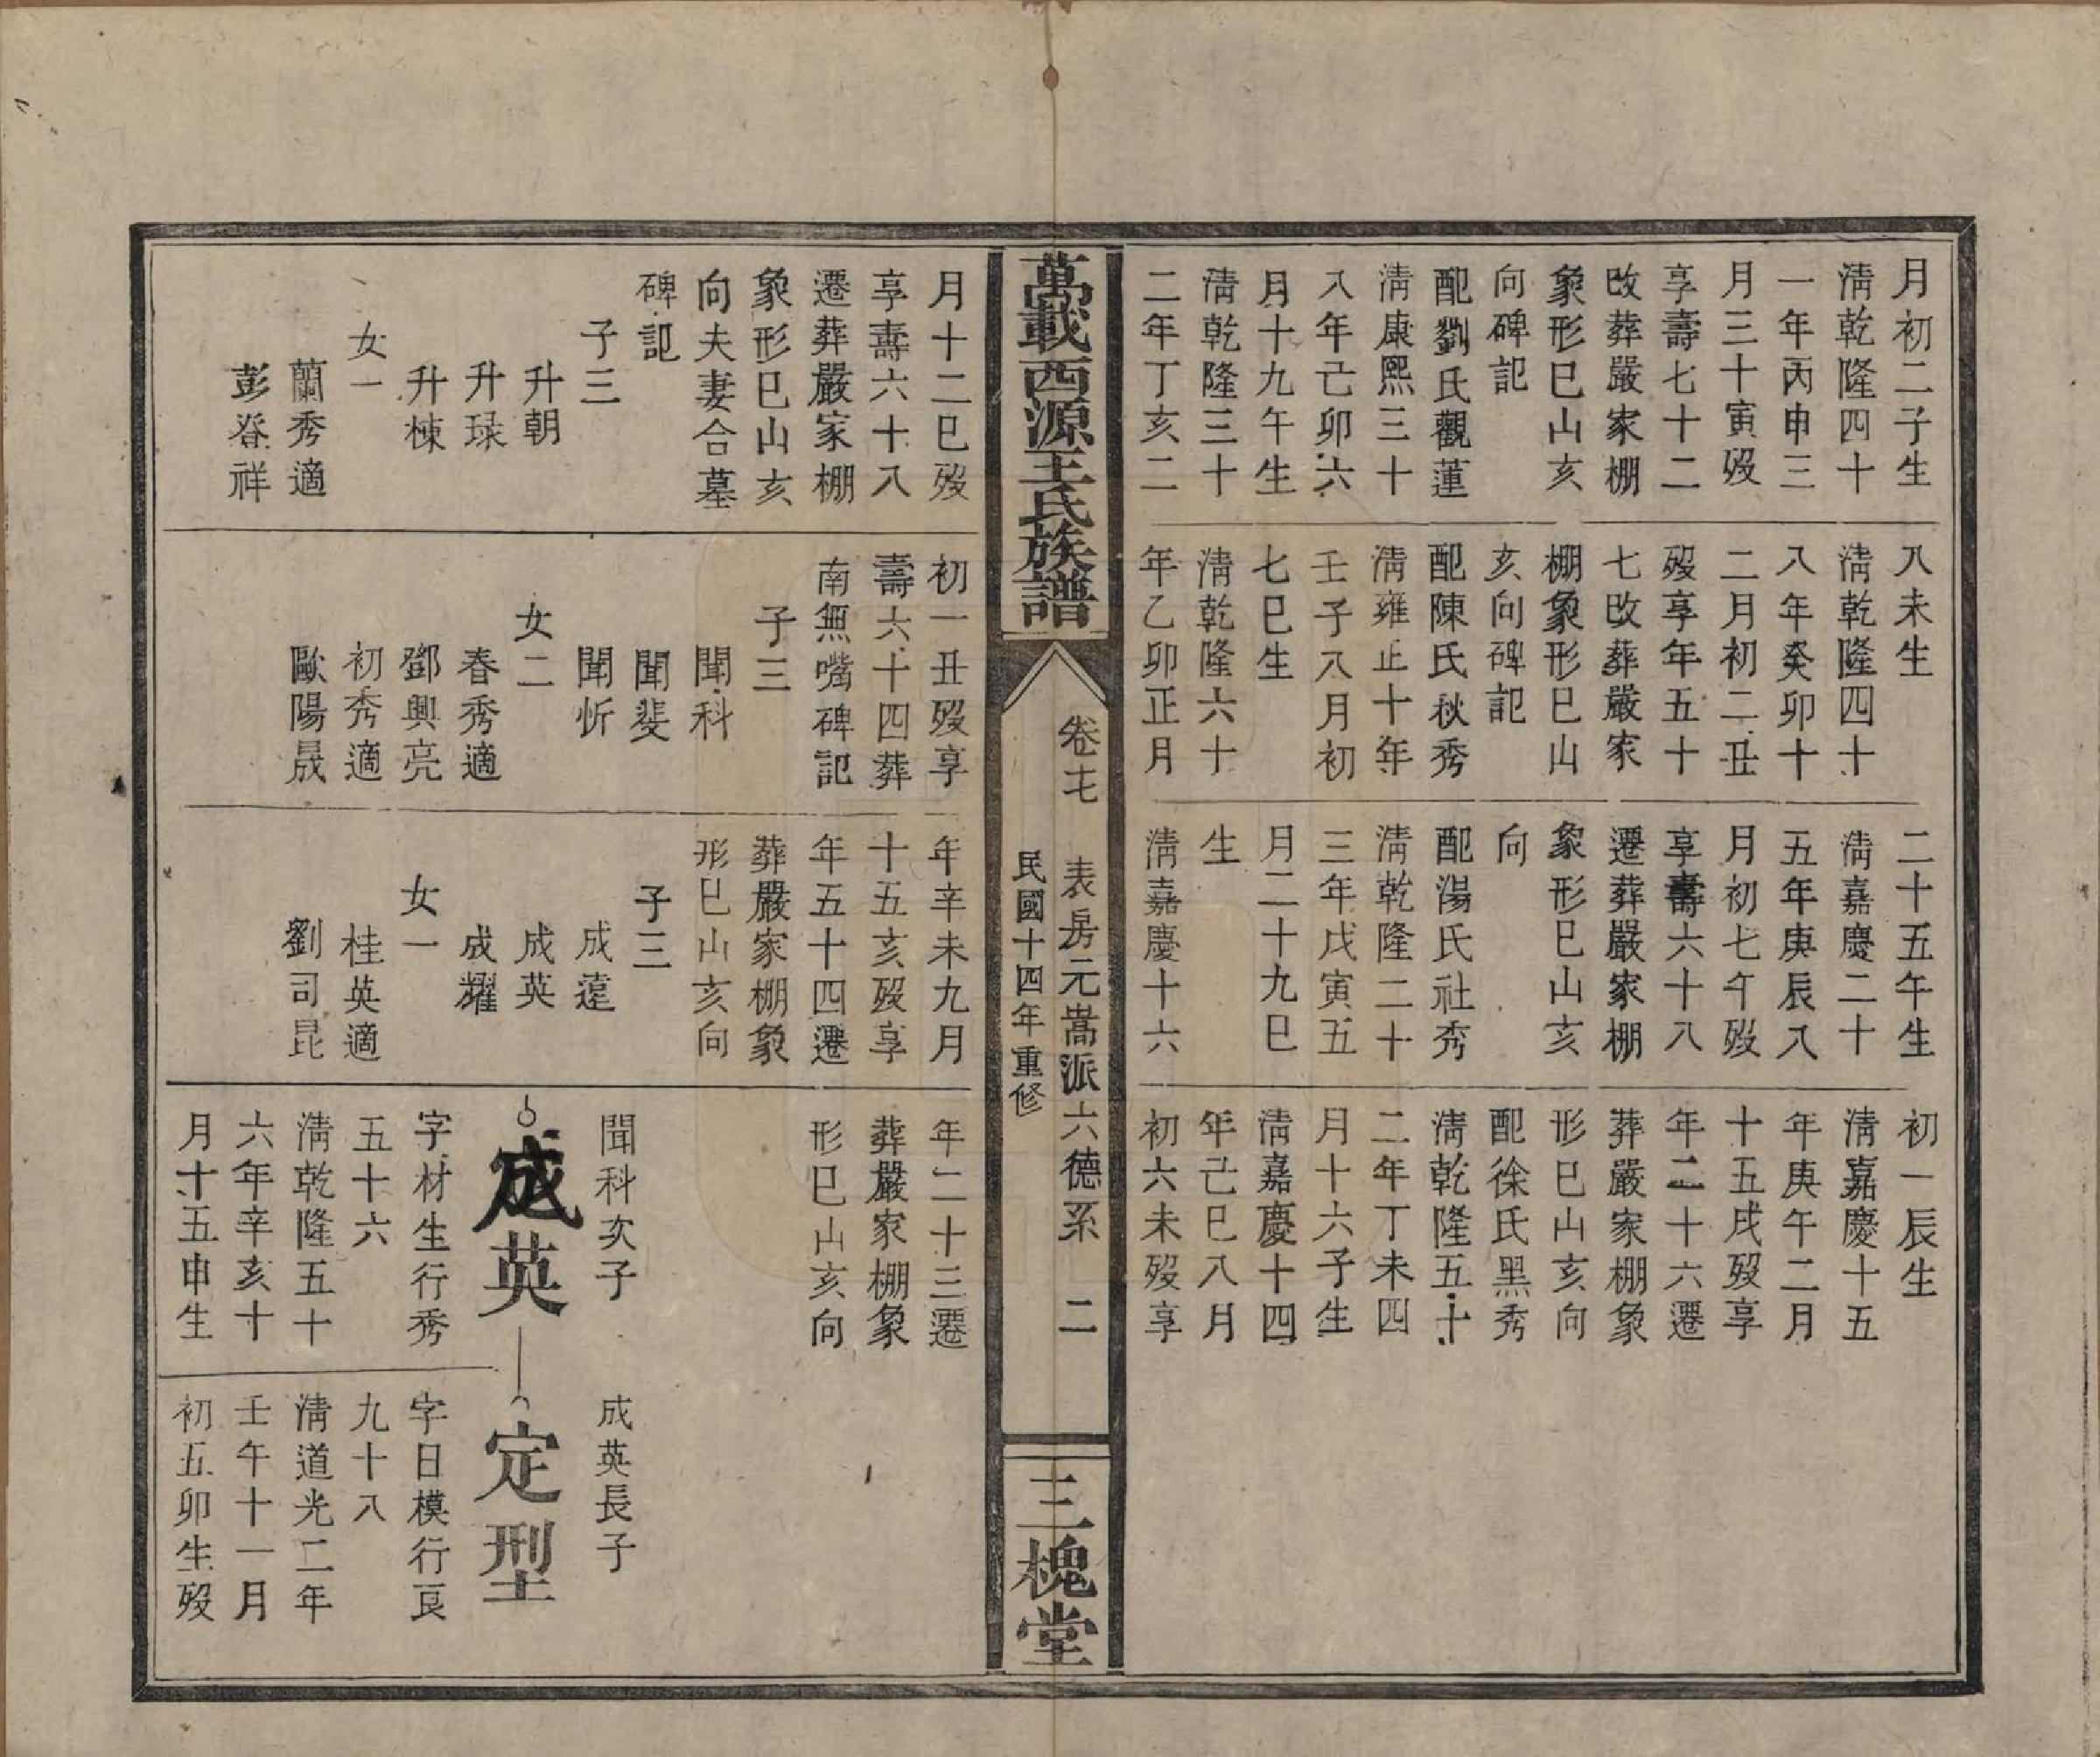 月初二子生
清乾隆四十
一年丙申三
月三十寅歿
享壽七十二
改葬嚴家棚
象形巳山亥
向碑記
配劉氏觀蓮
清康熙三十
八年己卯六
月十九午生
清乾隆三十
二年丁亥二
八未生
清乾隆四十
八年癸卯十
二月初二丑
歿享年五十
七改葬嚴家
棚象形巳山
亥向碑記
配陳氏秋秀
清雍正十年
壬子八月初
七巳生
清乾隆六十
年乙卯正月
二十五午生
清嘉慶二十
五年庚辰八
月初七午歿
享壽六十八
遷葬嚴家棚
象形巳山亥
向
配湯氏社秀
清乾隆二十
三年戊寅五
月二十九巳
生
清嘉慶十六
初一辰生
清嘉慶十五
年庚午二月
十五戌歿享
年二十六遷
葬嚴家棚象
形巳山亥向
配徐氏黑秀
清乾隆五十
二年丁未四
月十六子生
清嘉慶十四
年己巳八月
初六未歿享
萬載西源王氏族譜
卷十七 表房元嵩派六德系 二
民國十四年重修
三槐堂
月十二巳歿
享壽六十八
遷葬嚴家棚
象形巳山亥
向夫妻合墓
碑記
子三
升朝
升琭
升棟
女一
蘭秀適
彭發祥
初一丑歿享
壽六十四葬
南無嘴碑記
子三
聞科
聞斐
聞忻
女二
春秀適
鄧興亮
初秀適
歐陽晟
年辛未九月
十五亥歿享
年五十四遷
葬嚴家棚象
形巳山亥向
子三
成遠
成英
成耀
女一
桂英適
劉司昆
年二十三遷
葬嚴家棚象
形巳山亥向
聞科次子
成英
字材生行秀
五十六
清乾隆五十
六年辛亥十
月十五申生
成英長子
定型
字日模行良
九十八
清道光二年
壬午十一月
初五卯生歿